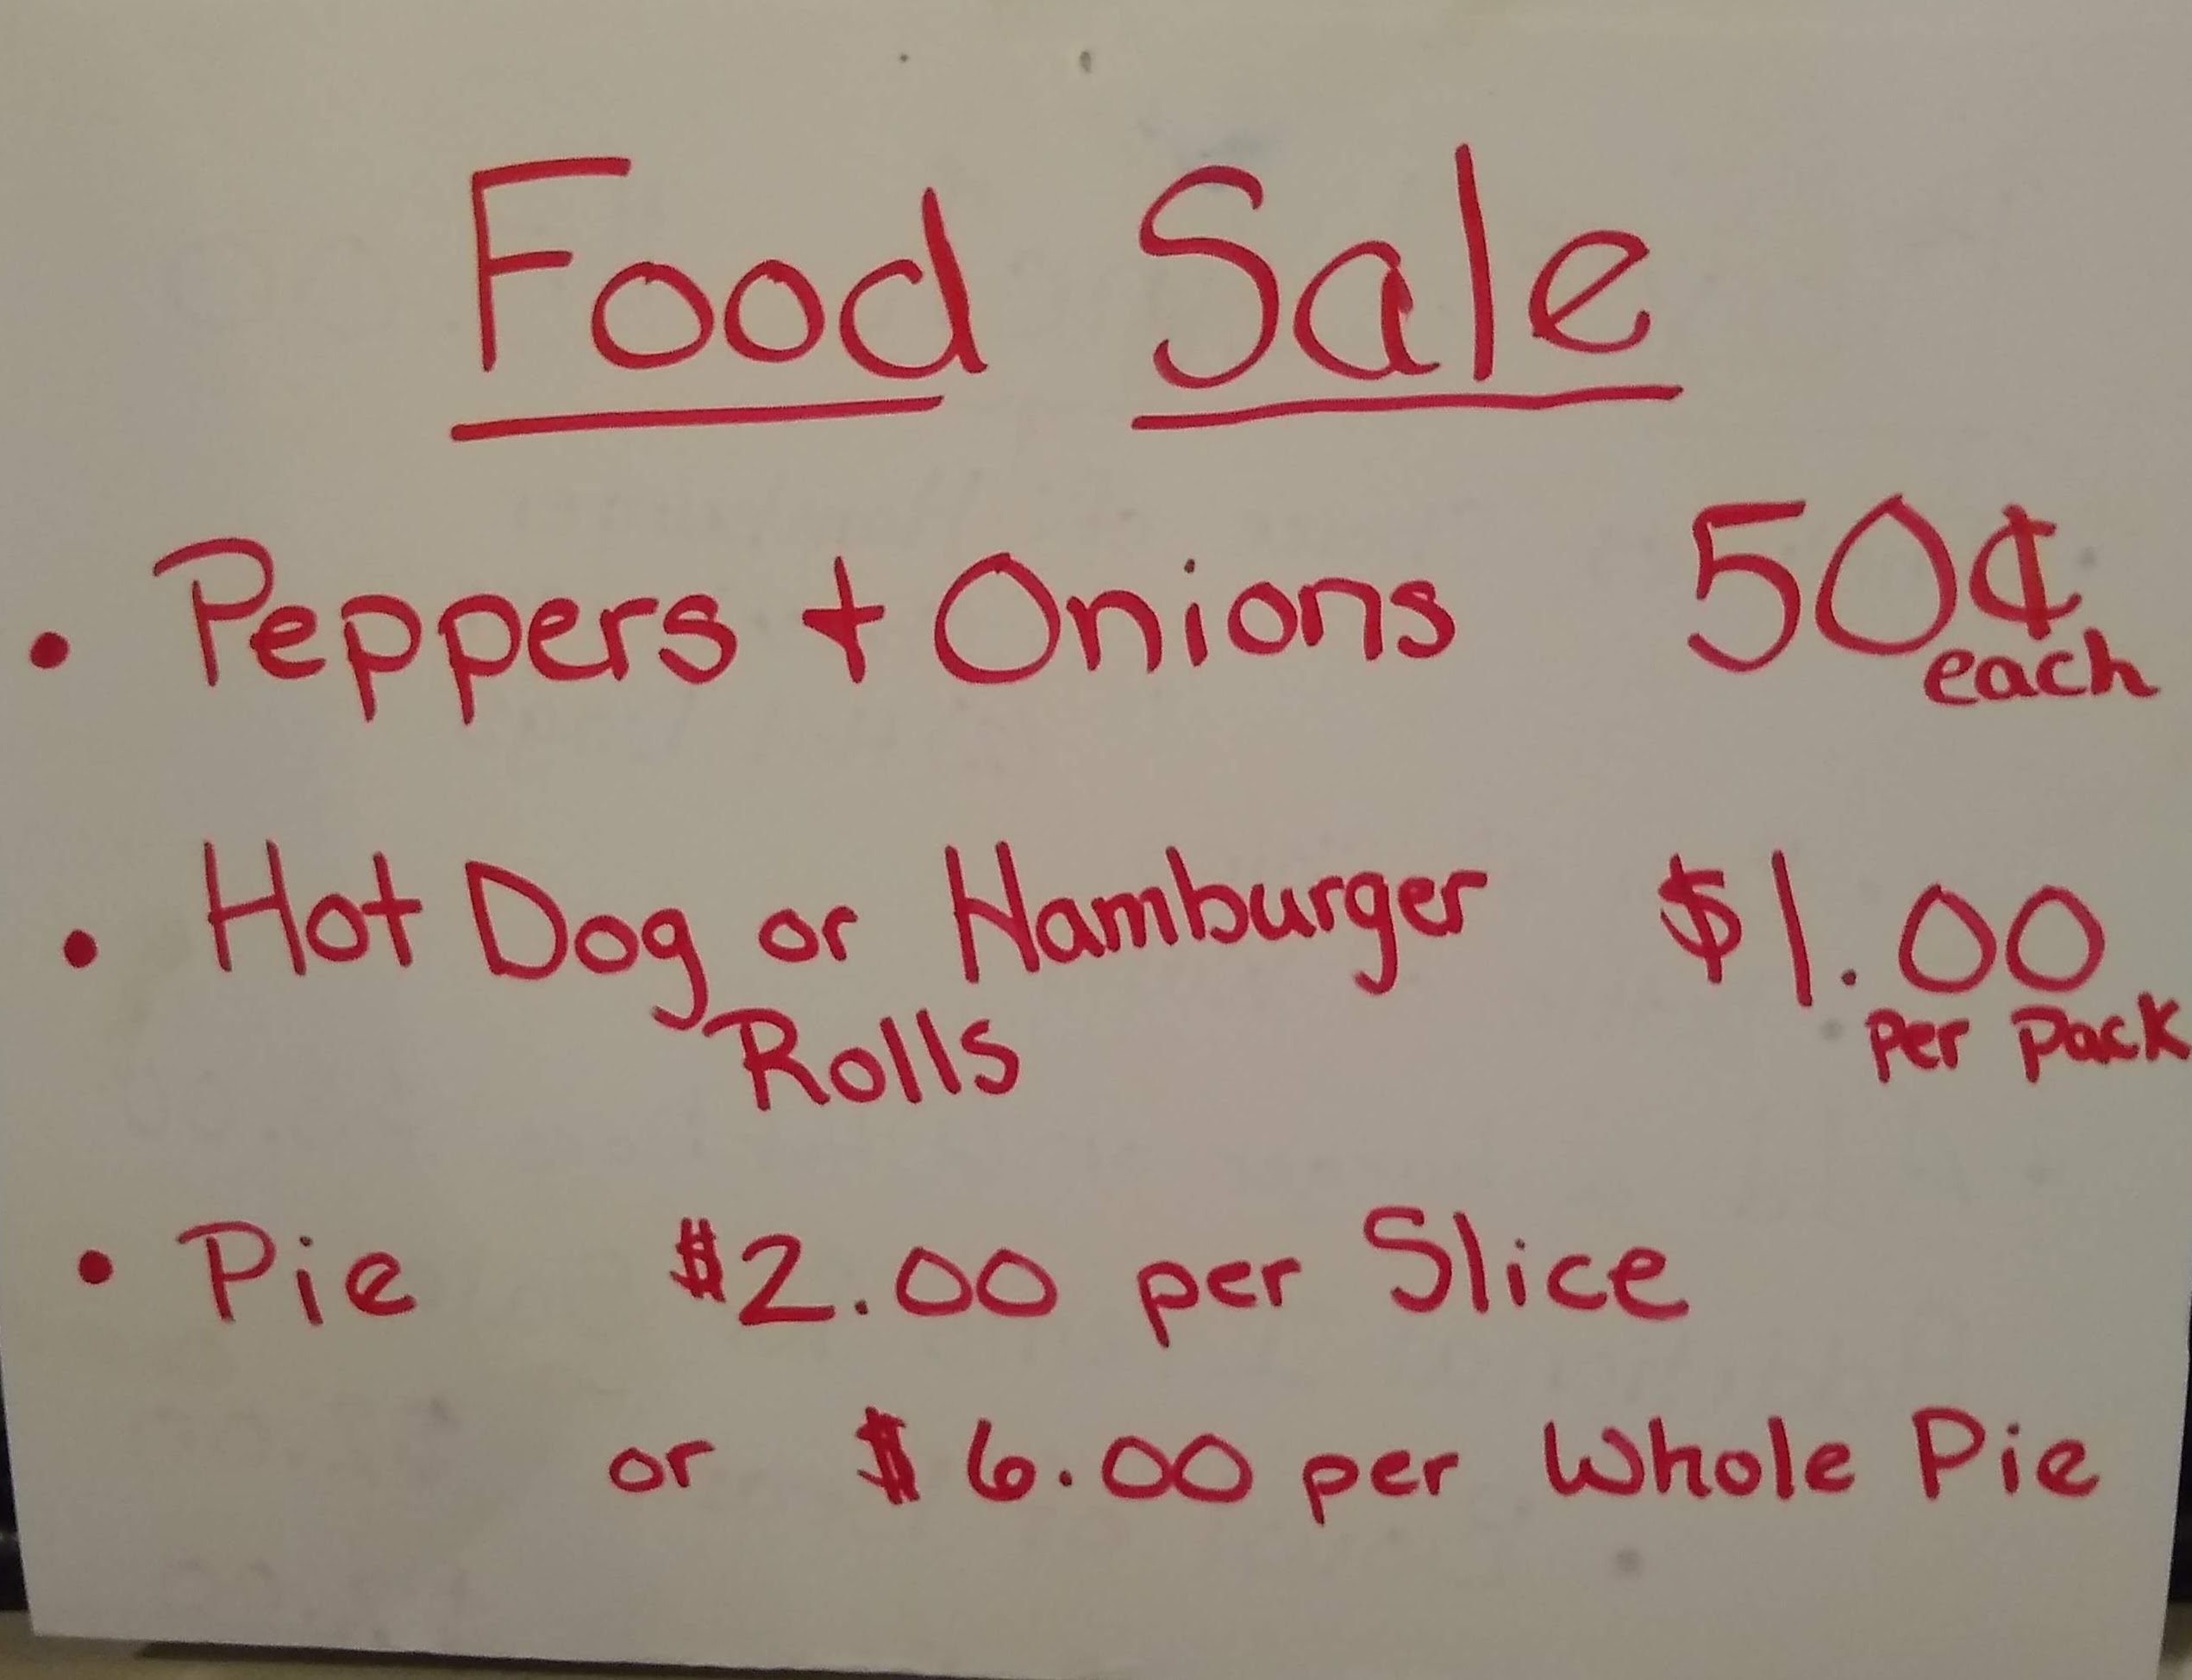 Food Sale
• Peppers + Onions 50¢
each
• Hot Dog or Hamburger $1.00
Rolls per pack
• Pie $2.00 per Slice
or $6.00 per Whole Pie